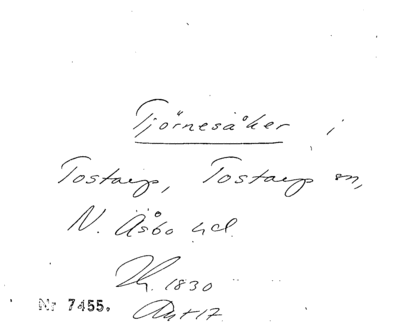 Tjörnesåker i
Tostarp, Tostarp sn,
N. Åsbo hd.
Uh. 1830
Nr 7455. Akt 17